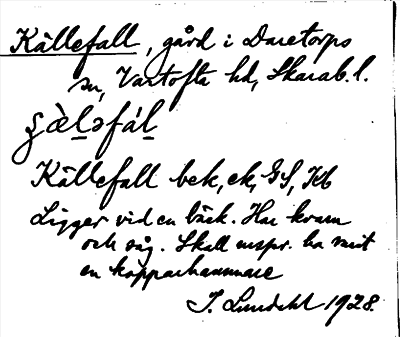 Källefall, gård i Daretorps
sn, Vartofta hd, Skarab. l.
Källefall bek, ek, GS, Kb
Ligger vid en bäck. Har kvarn
och såg. Skall urspr. ha varit
en kopparhammare
J. Lundahl 1928.